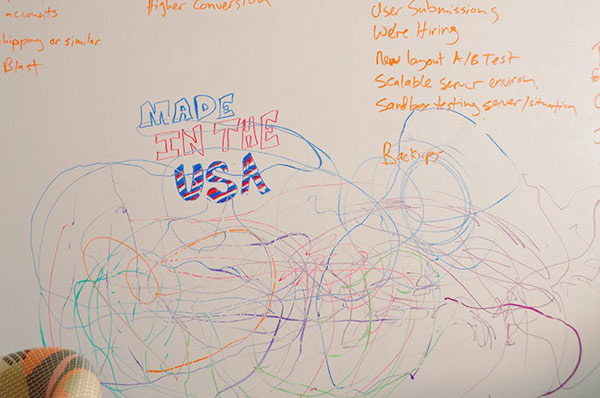 accounts
shipping or similar
Blast
Higher Conversion
User Submissions
We're Hiring
New layout A/B Test
Scalable server environ.
Sandbox testing server/situation
Backups
MADE
IN THE
USA